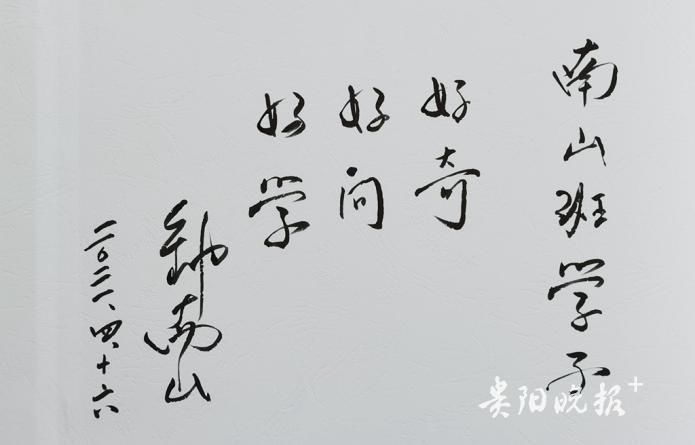 南山班学子
好奇
好问
好学
钟南山
二〇二一、四、十六
贵阳晚报+